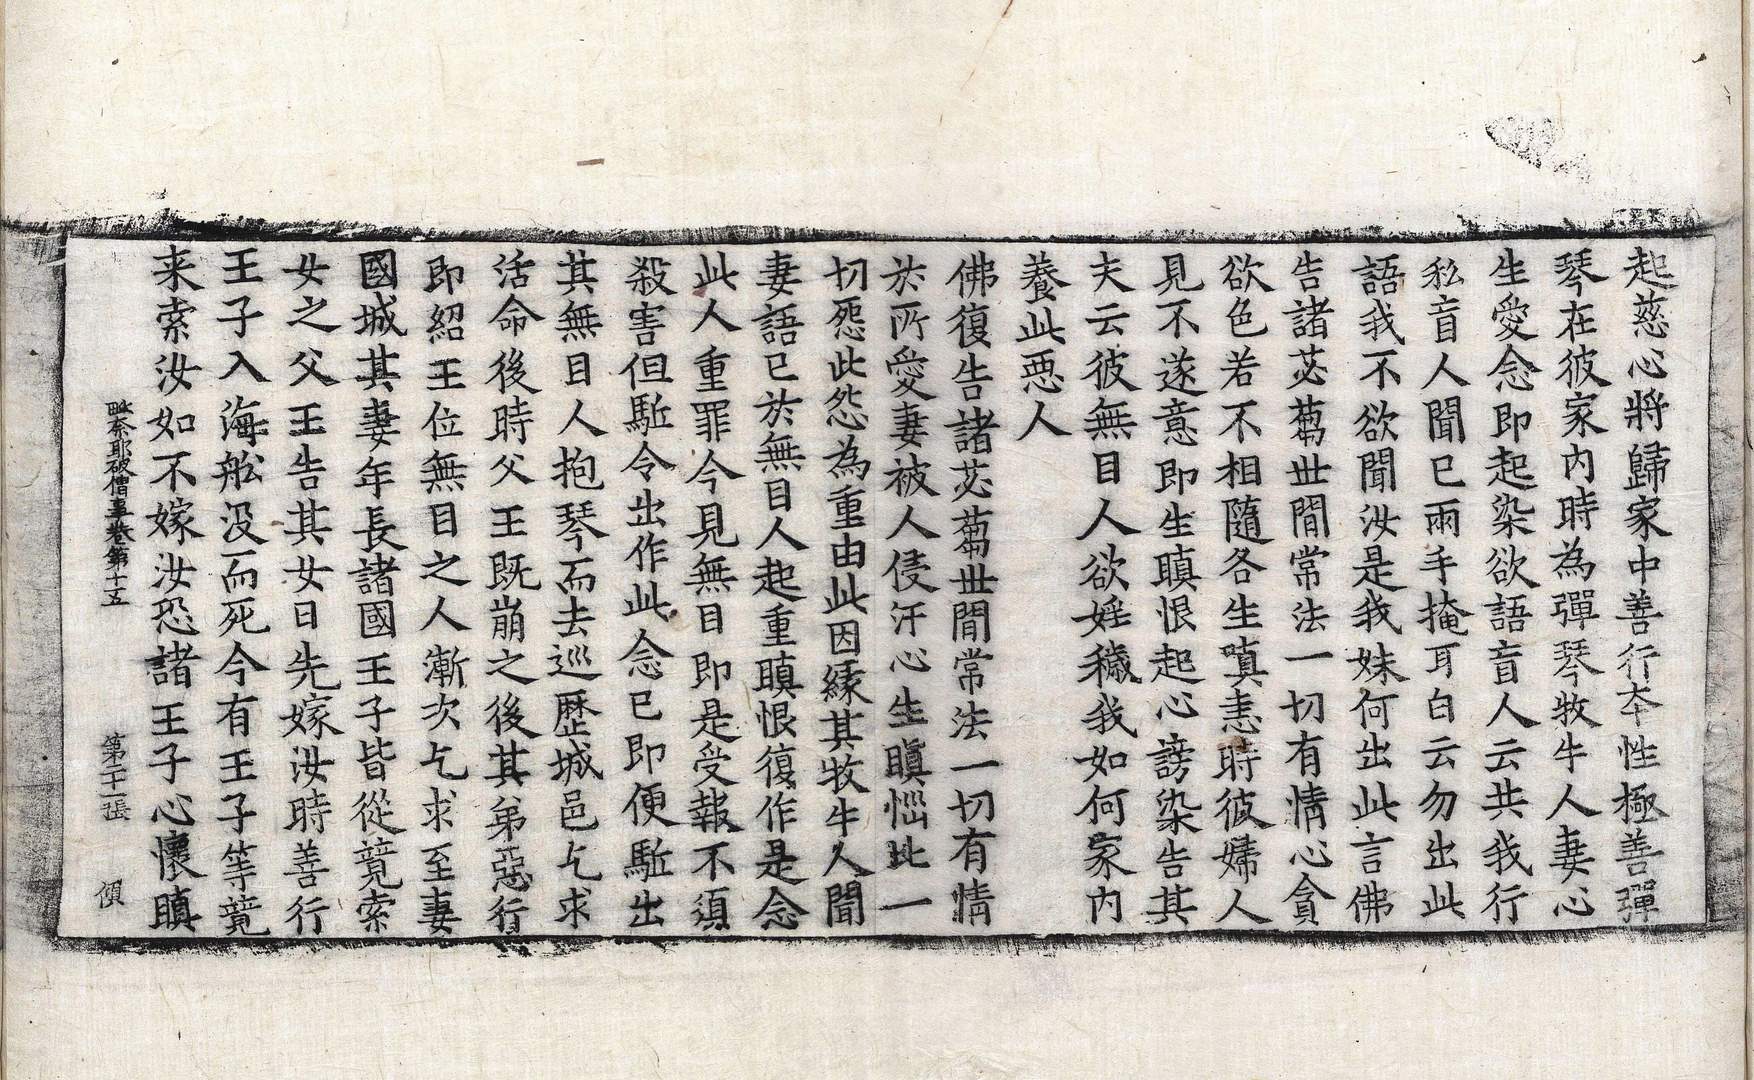 起慈心將歸家中善行本性極善彈
琴在彼家內時為彈琴牧牛人妻心
生愛念即起染欲語盲人云共我行
私盲人聞已兩手掩耳白云勿出此
語我不欲聞汝是我妹何出此言佛
告諸苾蒭世間常法一切有情心貪
欲色若不相隨各生嗔恚時彼婦人
見不遂意即生瞋恨起心謗染告其
夫云彼無目人欲婬穢我如何家內
養此惡人
佛復告諸苾蒭世間常法一切有情
於所愛妻被人侵汙心生瞋惱此一
切怨此怨為重由此因緣其牧牛人聞
妻語已於無目人起重瞋恨復作是念
此人重罪今見無目即是受報不須
殺害但駈令出作此念已即便駈出
其無目人抱琴而去巡歷城邑乞求
活命後時父王既崩之後其弟惡行
即紹王位無目之人漸次乞求至妻
國城其妻年長諸國王子皆從競索
女之父王告其女曰先嫁汝時善行
王子入海舩沒而死今有王子等競
来索汝如不嫁汝恐諸王子心懷瞋
毗奈耶破僧事卷第十五　第二十一張　傾